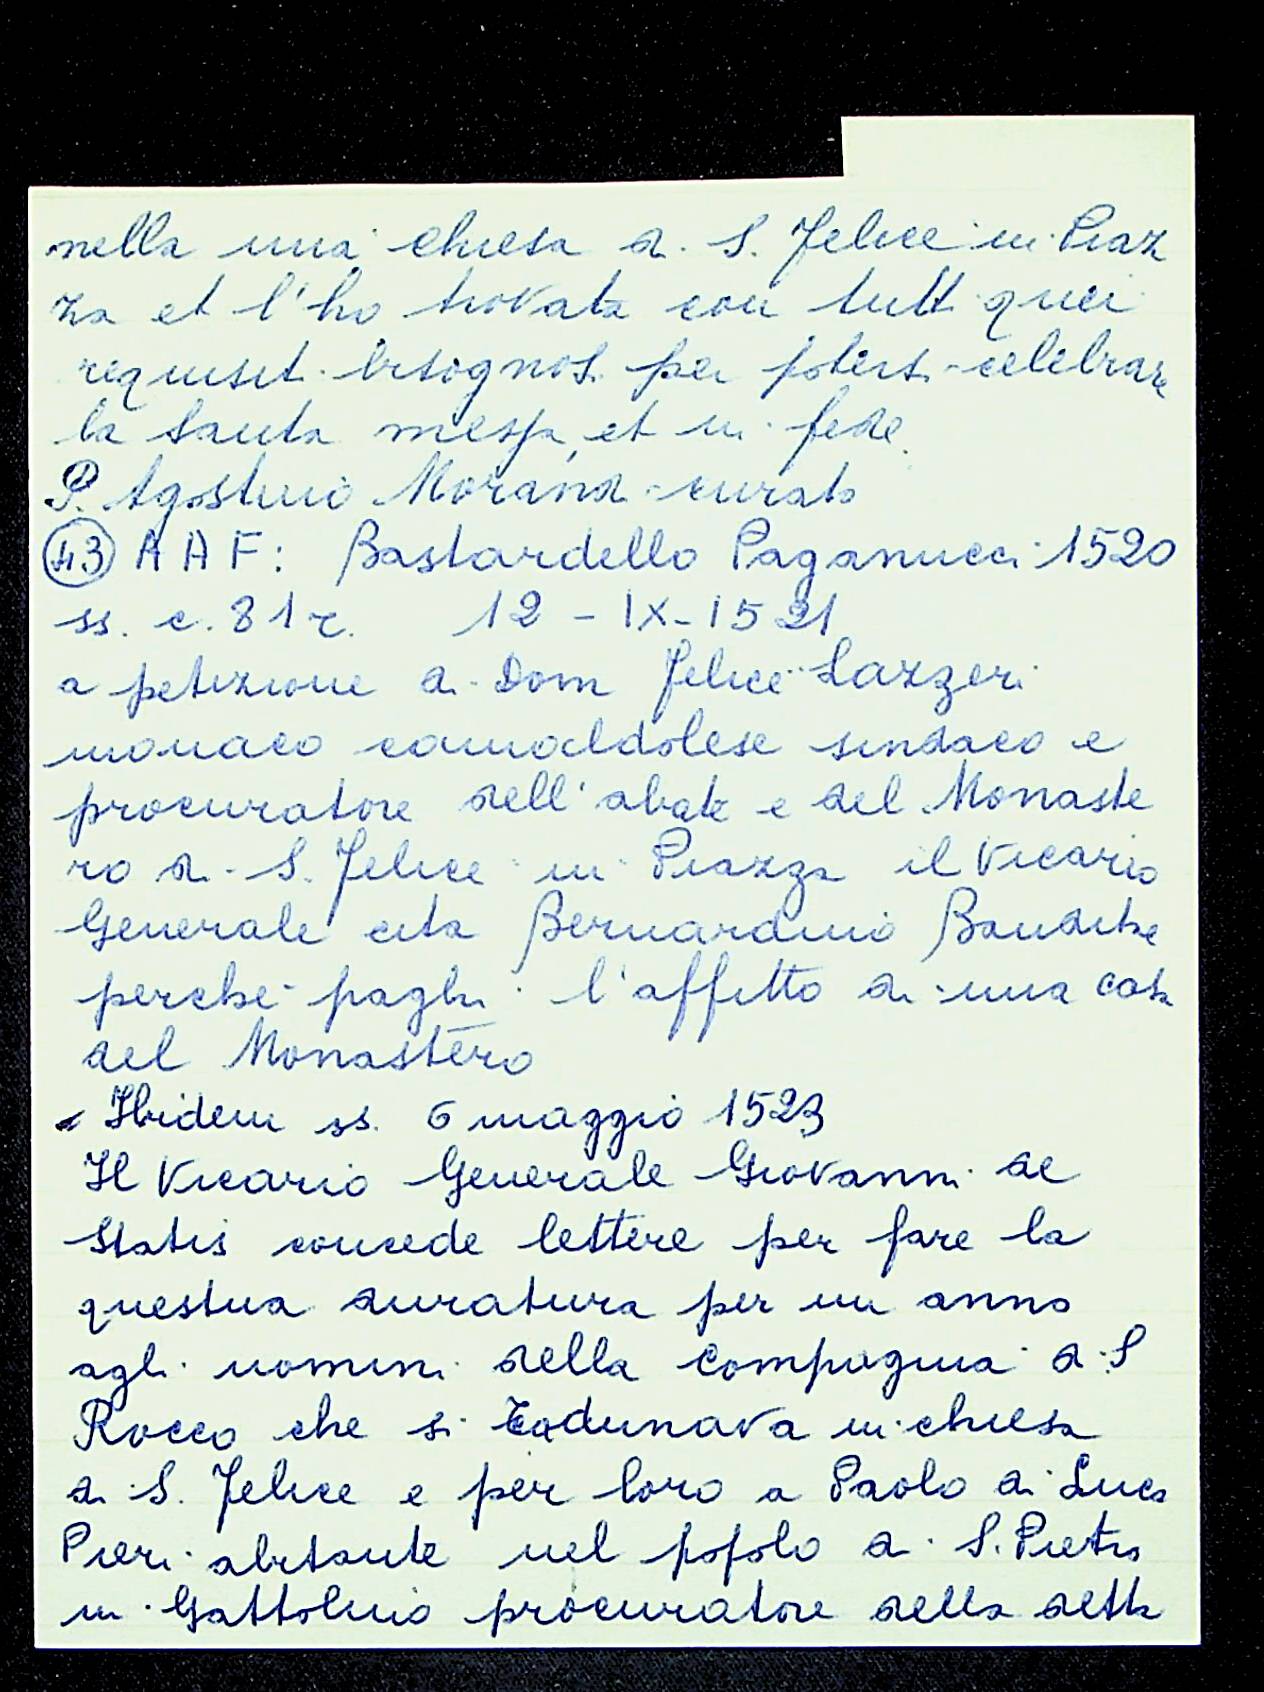 nella mia chiesa di S. Felice in Piaz
za et l'ho trovata con tutti quei
requisiti bisognosi per potersi celebrare
la santa messa, et in fede.
P. Agostino Morandi curato
(43) A A F: Bastardello Paganucci 1520
ss. c. 81 r. 12 - IX - 1521
a petizione di Dom Felice Lazzeri
monaco camaldolese sindaco e
procuratore dell'abate e del Monaste
ro di S. Felice in Piazza il Vicario
Generale cita Bernardino
perché paghi l'affitto di una casa
del Monastero
Ibidem ss. 6 maggio 1523
Il Vicario Generale Giovanni de
Statis concede lettere per fare la
questua duratura per un anno
agli uomini della compagnia di S
Rocco che si radunava in chiesa
di S. Felice e per loro a Paolo di Luca
Pieri abitante nel popolo di S. Pietro
in Gattolino procuratore della detta